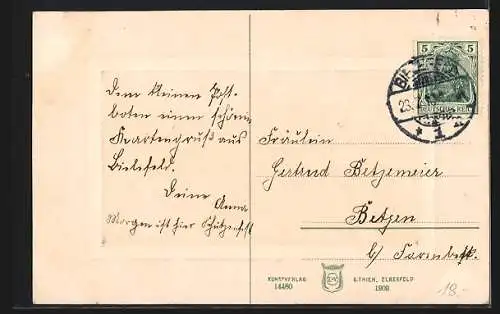 Dem kleinen Post-
boten einen schönen
Kartengruß aus
Bielefeld.
Deine Anna
Morgen ist hier Schützenfest
5 5
DEUTSCHES REICH
BIELEFELD
23.
* 1
Fräulein
Gertrud Betzemeier
Betzen
b/
KUNSTVERLAG
14480
G. THIEN, ELBERFELD
1908
18.-